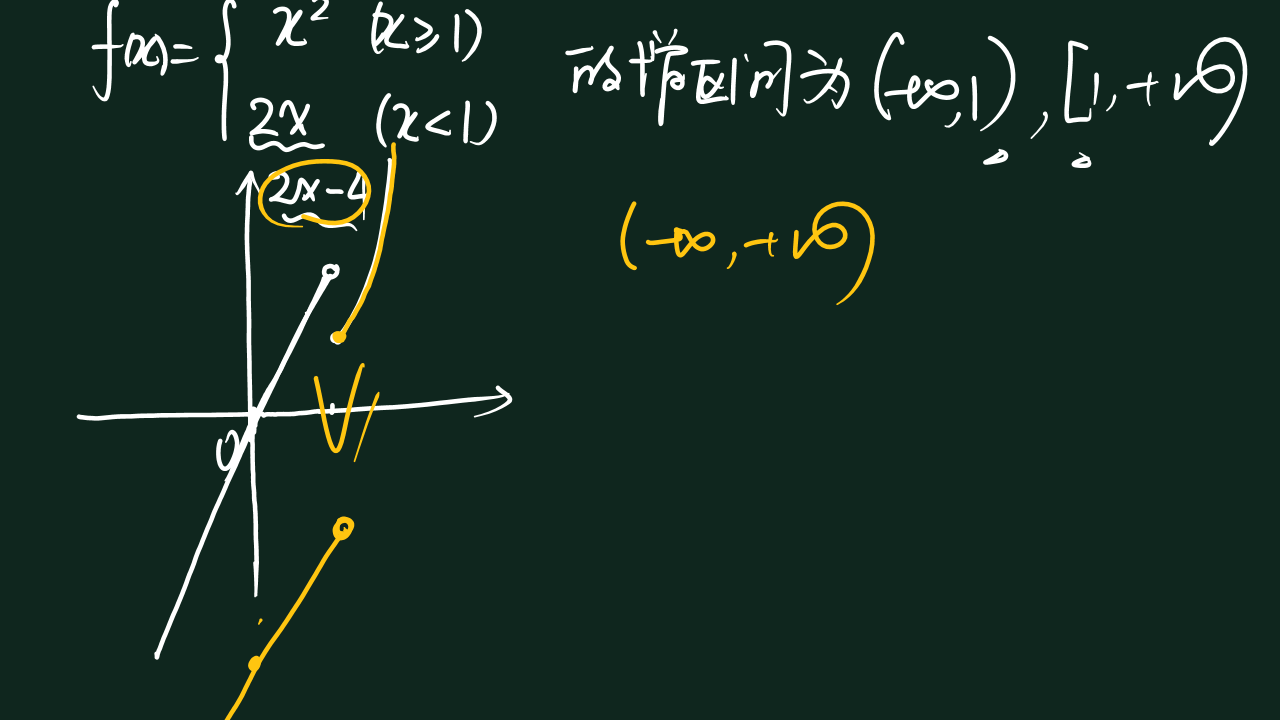 f(x)= { x² (x≥1)
2x (x<1)
2x-4
的增区间为 (-∞,1), [1,+∞)
(-∞,+∞)
O